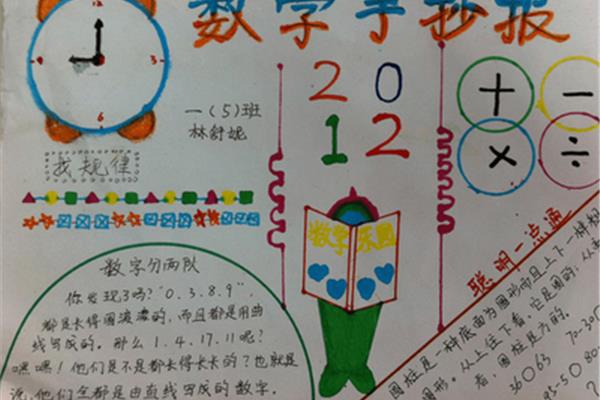 数字手抄报
12
3
6
一(5)班
林舒妮
20
12
+ -
× ÷
找规律
数字分两队
你发现了吗？"0.3.8.9"
都是长得圆滚滚的，而且都是用曲
线写成的。那么1.4.17.11呢？
嘿嘿！他们是不是都长得长长的？也就是
说，他们全都是由直线写成的数字。
数学乐园
聪明一点通
圆柱是一种底面为圆形而且上下一样粗
图形。从上往下看，它是圆的；从
看，圆柱是方的。
36○63
70-30
95-5○80